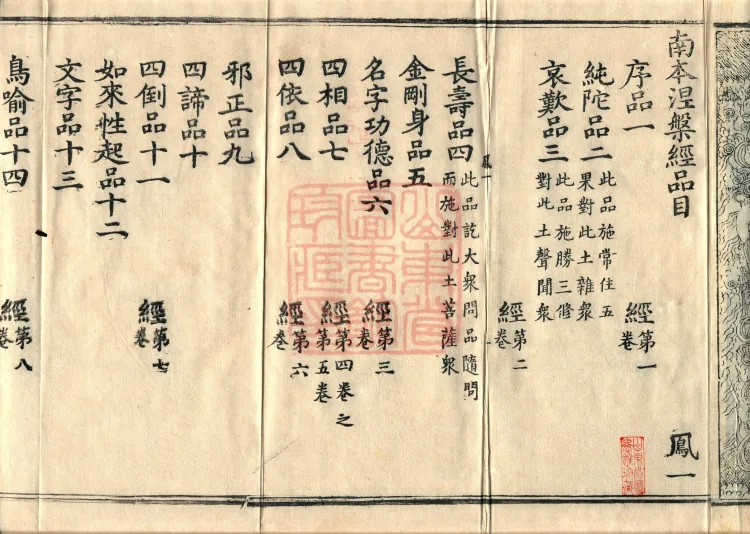 南本涅槃經品目
鳳一
序品一
經第一卷
純陀品二
此品施常住五
果對此土雜衆
哀歎品三
此品施勝三修
對此土聲聞衆
經第二卷
鳳一
長壽品四
此品訖大衆問品隨問
而施對此土菩薩衆
金剛身品五
名字功德品六
經第三卷
四相品七
經第四卷之
第五卷
四依品八
經第六卷
邪正品九
四諦品十
四倒品十一
經第七卷
如來性起品十二
文字品十三
鳥喻品十四
經第八卷
山東省
圖書館